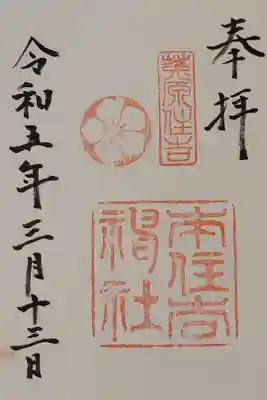 奉拝
菟原住吉
本住吉
神社
令和五年三月十三日